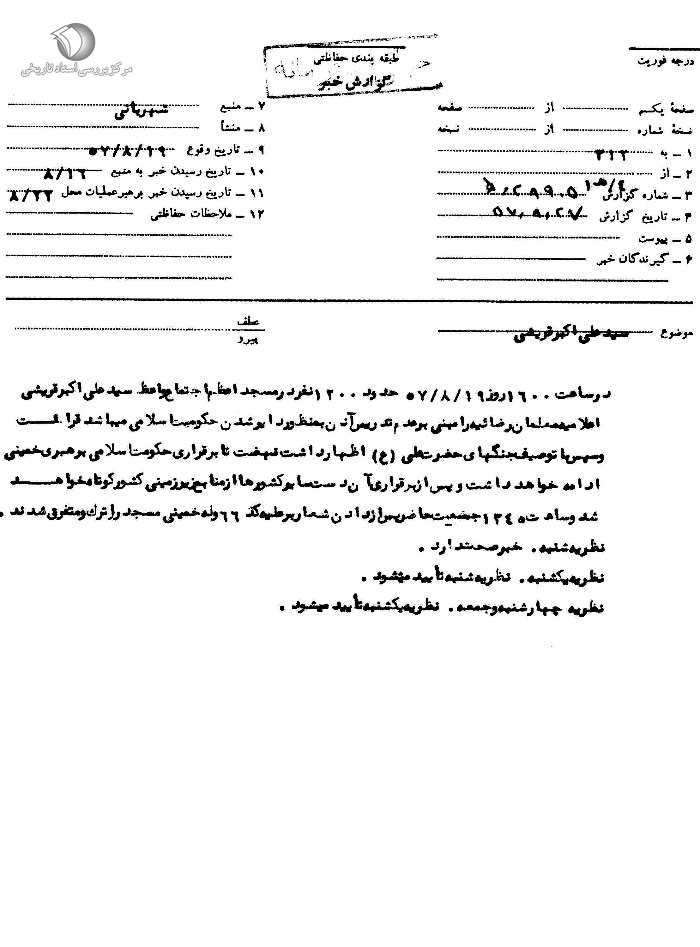 مرکز بررسی اسناد تاریخی
درجه فوریت
طبقه بندی حفاظتی
گزارش خبر
صفحهٔ یکم از صفحه
نسخهٔ شماره از نسخه
۱ ـ به ۳۱۲
۲ ـ از
۳ ـ شماره گزارش
۴ ـ تاریخ گزارش
۵ ـ پیوست
۶ ـ گیرندگان خبر
۷ ـ منبع شهربانی
۸ ـ منشأ
۹ ـ تاریخ وقوع ۵۷/۸/۱۹
۱۰ ـ تاریخ رسیدن خبر به منبع
۱۱ ـ تاریخ رسیدن خبر به رهبر عملیات محل ۸/۲۲
۱۲ ـ ملاحظات حفاظتی
موضوع سید علی اکبر قریشی
عطف
پیرو
در ساعت ۱۶۰۰ روز ۵۷/۸/۱۹ حدود ۱۲۰۰ نفر در مسجد اعظم اجتماع واعظ سید علی اکبر قریشی
اعلامیه معلمان رضائیه را مبنی بر عدم تدریس آنان بمنظور دایر شدن حکومت اسلامی میباشد قرائت
و سپس با توصیف جنگهای حضرت علی (ع) اظهار داشت نهضت تا برقراری حکومت اسلامی بر هبری خمینی
ادامه خواهد داشت و پس از برقراری آن دست سایر کشورها از منابع زیرزمینی کشور کوتاه خواهد
شد و ساعت جمعیت حاضر پس از دادن شعار بر علیه کف ۶۶ وله خمینی مسجد را ترک و متفرق شدند .
نظریه شنبه . خبر صحت دارد .
نظریه یکشنبه . نظریه شنبه تأیید میشود .
نظریه چهارشنبه و جمعه . نظریه یکشنبه تأیید میشود .